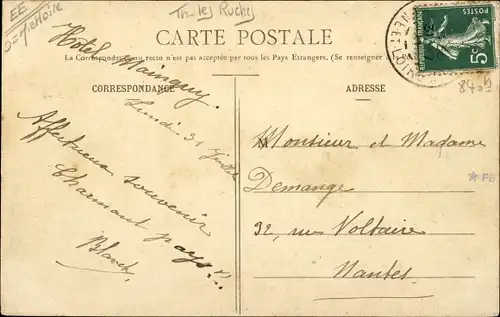 EE
Th-les Roches
CARTE POSTALE
La Correspondance au recto n'est pas acceptée par tous les Pays Etrangers. (Se renseigner
CORRESPONDANCE
ADRESSE
POSTES
5c
ET-LOIR
8402
Hôtel Mainguy.
Lundi 31 Juillet
Affectueux souvenir
Charmant pays!!
Blanche
Monsieur et Madame
Demange
32, rue Voltaire
Nantes